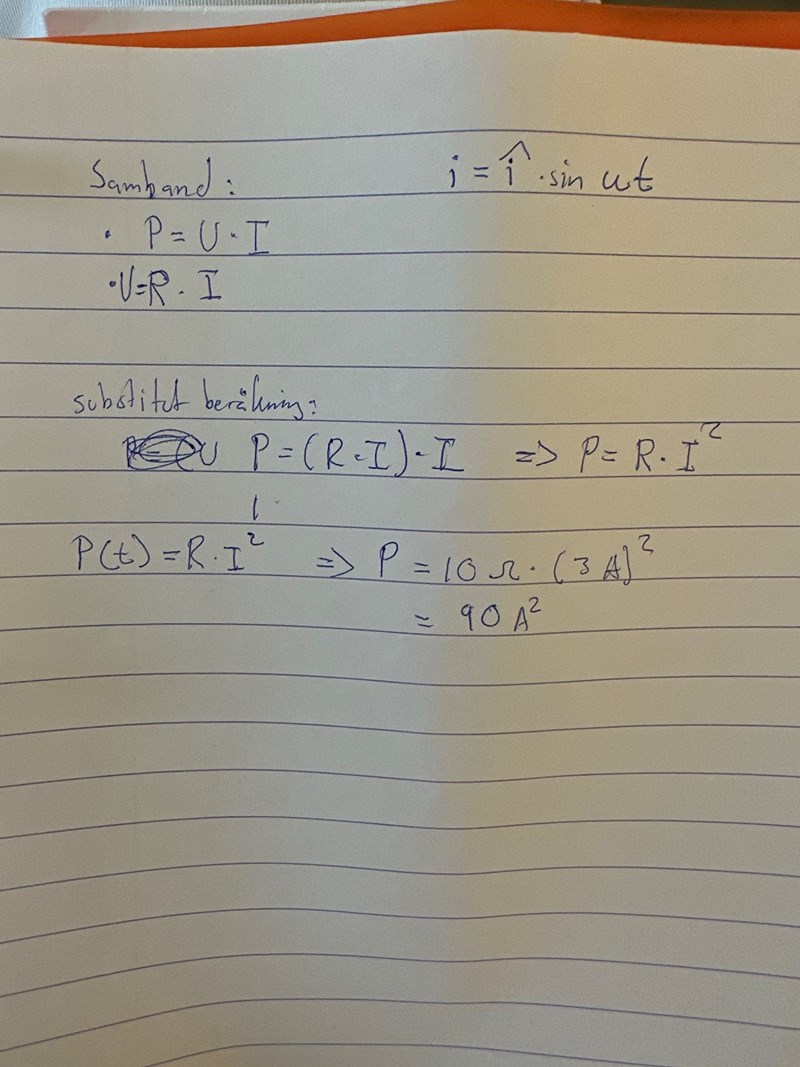 Samband:
i = î · sin ωt
· P = U · I
· U = R · I
substitut beräkning:
U P = (R · I) · I => P = R · I²
P(t) = R · I² => P = 10 Ω · (3 A)²
= 90 A²